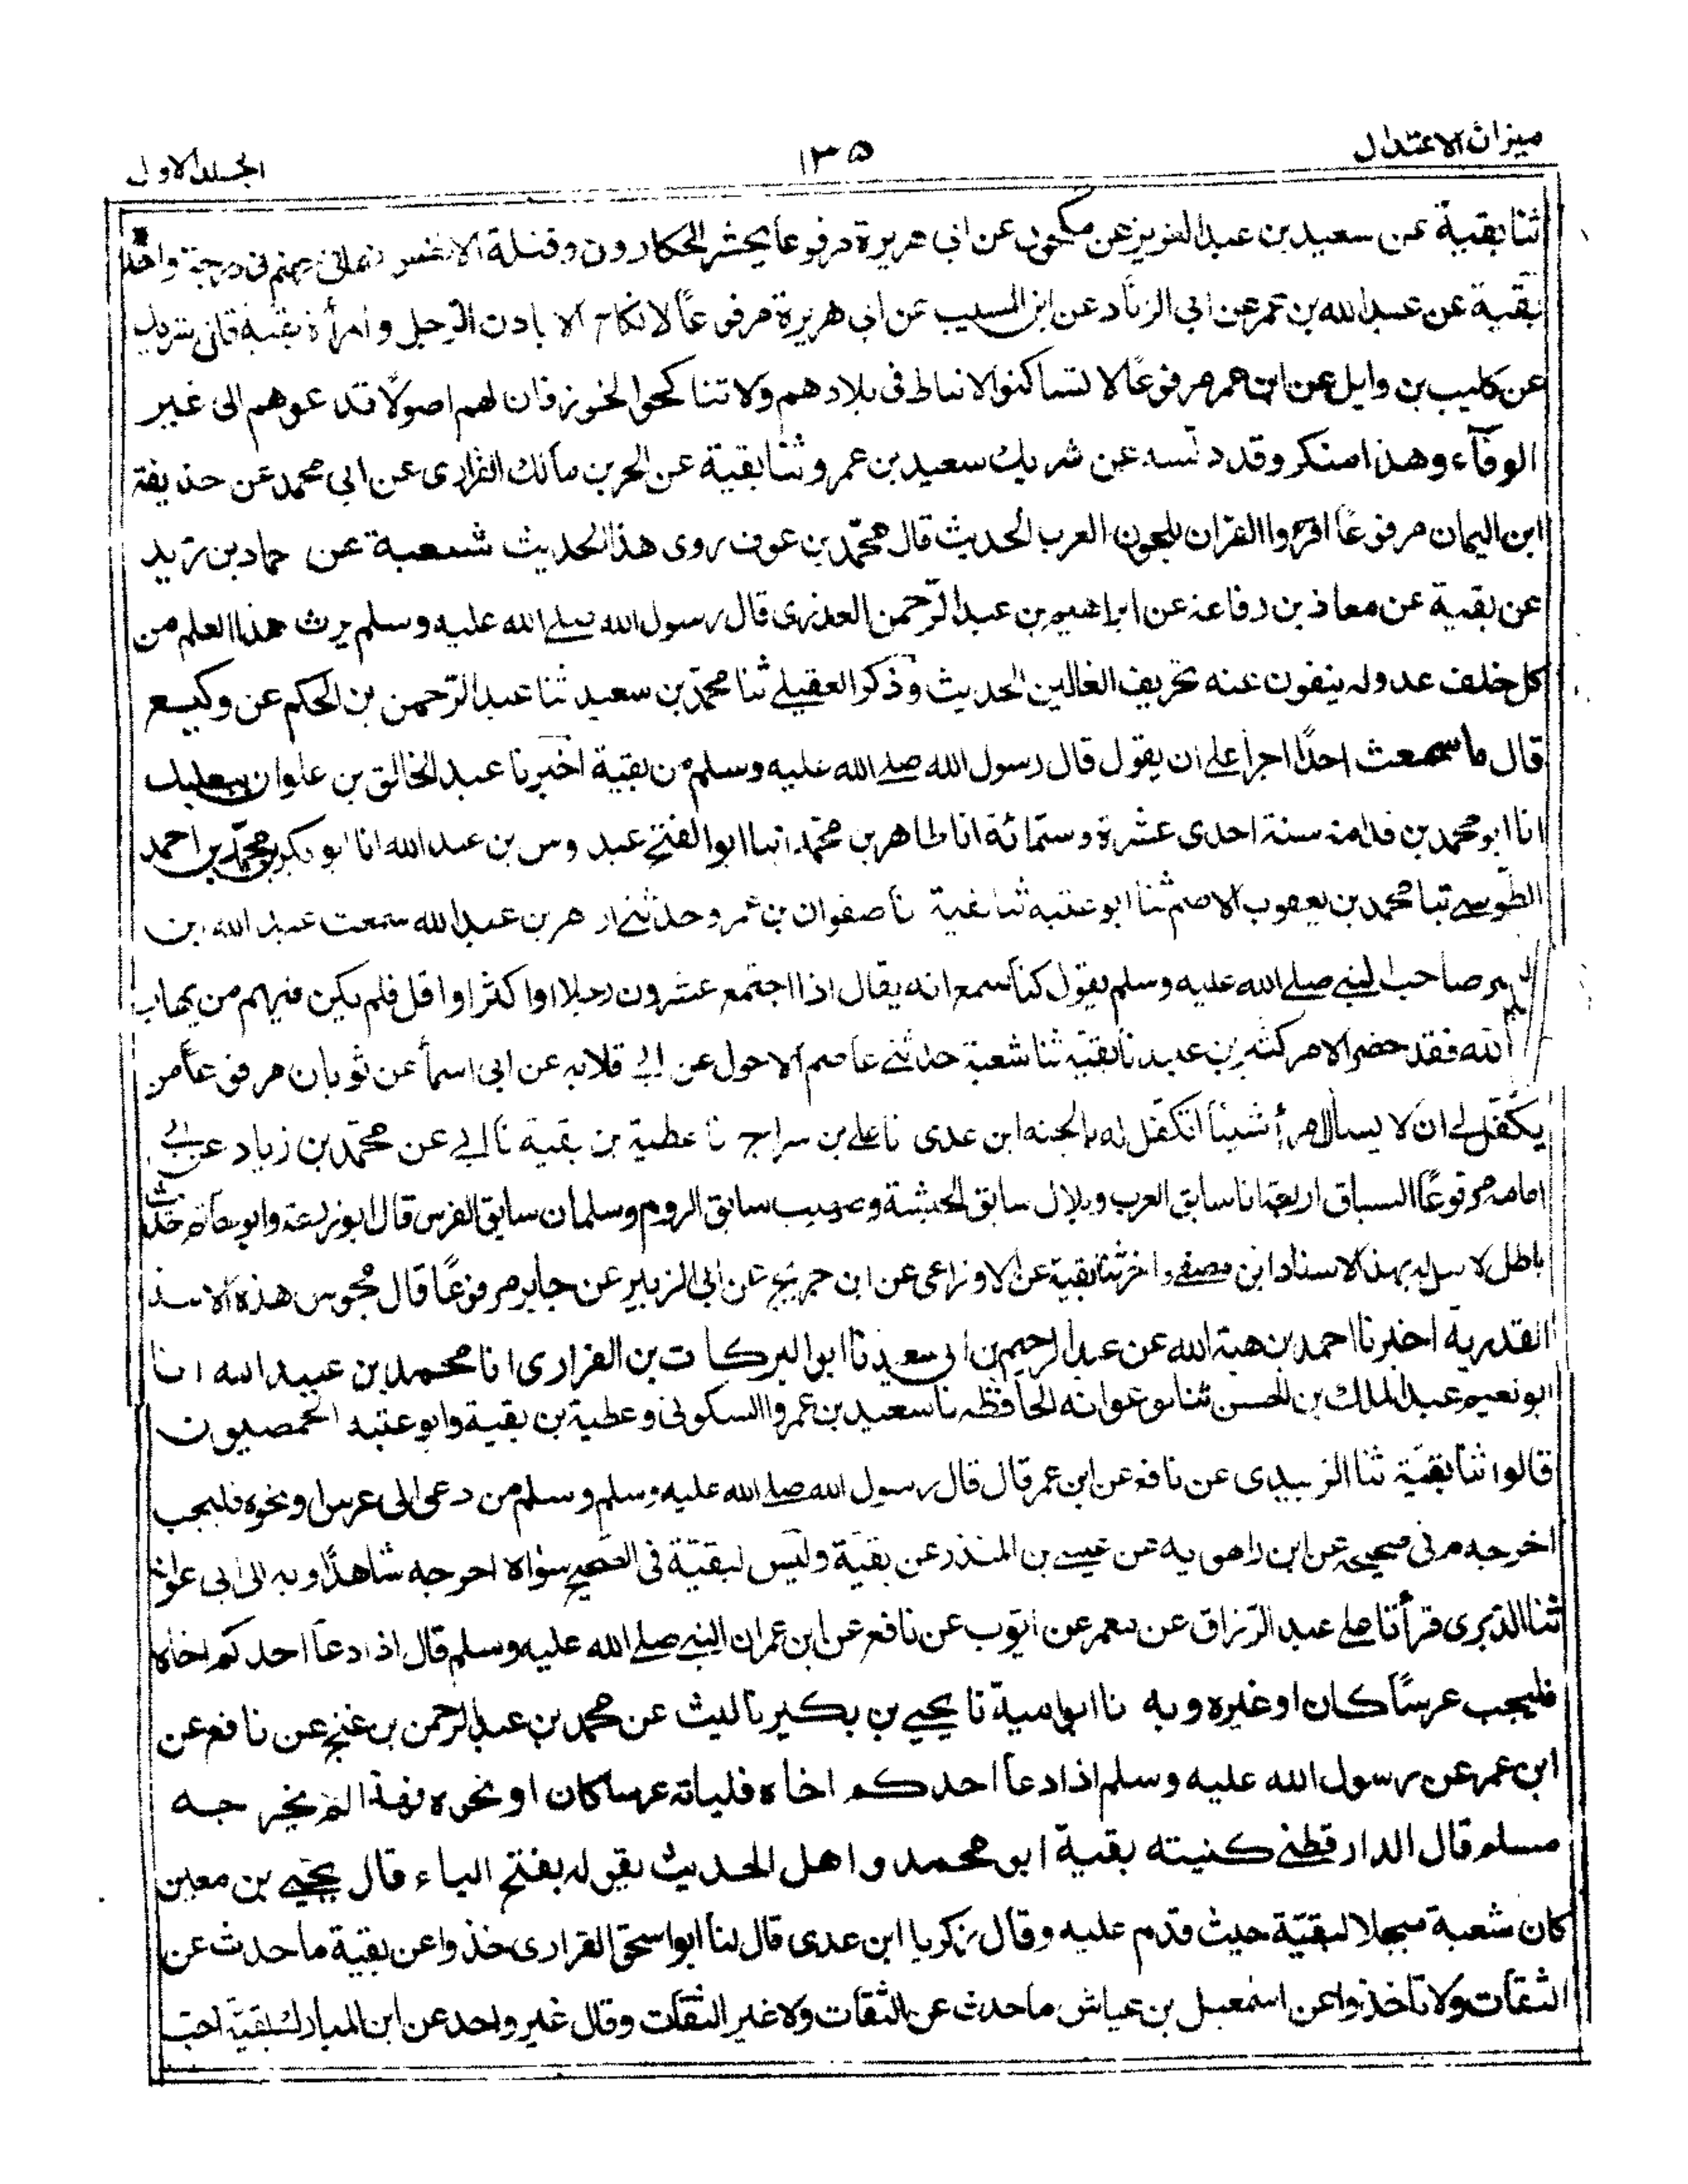 ميزان الاعتدال
١٣٥
الجلد الاول
ثنا بقية عن سعيد بن عبد العزيز عن مكحول عن ابي هريرة مرفوعا يحشر الحكارون وقتلة الانفس الى جهنم في درجة واحدة
بقية عن عبد الله بن عمر عن ابي الزناد عن ابن المسيب عن ابي هريرة مرفوعًا لا نكاح الا باذن الرجل وامرأة بقية
عن كليب بن وايل عن ابن عمر مرفوعًا لا تساكنوا الانباط في بلادهم ولا تناكحوا الخوز فان لهم اصولًا تدعوهم الى غير
الوفآء وهذا منكر وقد دلسه عن شريك سعيد بن عمر و ثنا بقية عن الحر بن مالك الفزارى عن ابي محمد عن حذيفة
ابن اليمان مرفوعًا اقرؤا القران بلحون العرب الحديث قال محمد بن عوف روى هذا الحديث شعبة عن حماد بن زيد
عن بقية عن معاذ بن رفاعة عن ابراهيم بن عبد الرّحمن العذرى قال رسول الله صلى الله عليه وسلم يرث هذا العلم من
كل خلف عدوله ينفون عنه تحريف الغالين الحديث وذكر العقيلے ثنا محمد بن سعيد ثنا عبد الرّحمن بن الحكم عن وكيع
قال ما سمعت احدًا اجرأ على ان يقول قال رسول الله صلى الله عليه وسلم من بقية اخبرنا عبد الخالق بن علوان ببعلبك
انا ابو محمد بن قدامة سنة احدى عشرة وستمائة انا طاهر بن محمد انبا ابو الفتح عبدوس بن عبد الله انا ابو بكر محمد بن احمد
الطّوسے ثبا محمد بن يعقوب الاصم ثنا ابو عتبه ثنا بقية نا صفوان بن عمر وحدثنے ازهر بن عبد الله سمعت عبد الله بن
بسر صاحب النبے صلے الله عليه وسلم يقول كنا نسمع انه يقال اذا اجتمع عشرون رجلا او اكثر او اقل فلم يكن فيهم من يهاب
الله فقد حضر الامر كثير بن عبيد نا بقية ثنا شعبة حدثنے عاصم الاحول عن ابے قلابه عن ابى اسمأ عن ثوبان مرفوعًا من
يكفل لے ان لا يسأل امرأ شيئا اتكفل له بالجنه ابن عدى نا على بن سراج نا عطية بن بقية نا ابے عن محمّد بن زياد عن ابے
امامه مرفوعًا السباق اربعة انا سابق العرب وبلال سابق الحبشة وصهيب سابق الروم وسلمان سابق الفرس قال ابو زرعة وابو حاتم حديث
باطل لا اصل له بهذا الاسناد ابن مصفے واخر ثنا بقية عن الاوزاعى عن ابن جريج عن ابي الزبير عن جابر مرفوعًا قال مجوس هذه الامة
القدرية اخبرنا احمد بن هبة الله عن عبد الرحيم بن ابى سعيد نا ابو البركات بن الفزارى انا محمد بن عبيد الله انا
ابو نعيم عبد الملك بن الحسن ثنا ابو عوانه الحافظه نا سعيد بن عمرو السكوني وعطية بن بقية وابو عتبه الحمصيون
قالوا ثنا بقيّة ثنا الزبيدى عن نافع عن ابن عمر قال قال رسول الله صلے الله عليه وسلم وسلم من دعى الى عرس او نحوه فليجب
اخرجه م فى صحيحه عن ابن راهويه عن عيسے بن المنذر عن بقية وليس لبقيّة فى الصحيح سواه اخرجه شاهدًا وبه الى ابى عوانة
ثنا الدبرى قرأنا على عبد الرّزاق عن معمر عن ايّوب عن نافع عن ابن عمر ان النبے صلے الله عليه وسلم قال اذا دعا احدكم اخاه
فليجب عرسًا كان او غيره وبه نا ابو امية نا يحيے بن بكير نا ليث عن محمد بن عبد الرحمن بن غنج عن نافع عن
ابن عمر عن رسول الله عليه وسلم اذا دعا احدكم اخاه فلياته عرسا كان او نحوه فهذا لم يخرجه
مسلم قال الدارقطنے كنيته بقية ابو محمد واهل الحديث يقوله بفتح الياء قال يحيے بن معين
كان شعبة مبجلا لبقيّة حيث قدم عليه وقال زكريا ابن عدى قال لنا ابو اسحق الفزارى خذوا عن بقية ما حدث عن
الثقات ولا تأخذوا عن اسمعيل بن عياش ما حدث عن الثقات ولا غير الثقات وقال غير واحد عن ابن المبارك بقية احب